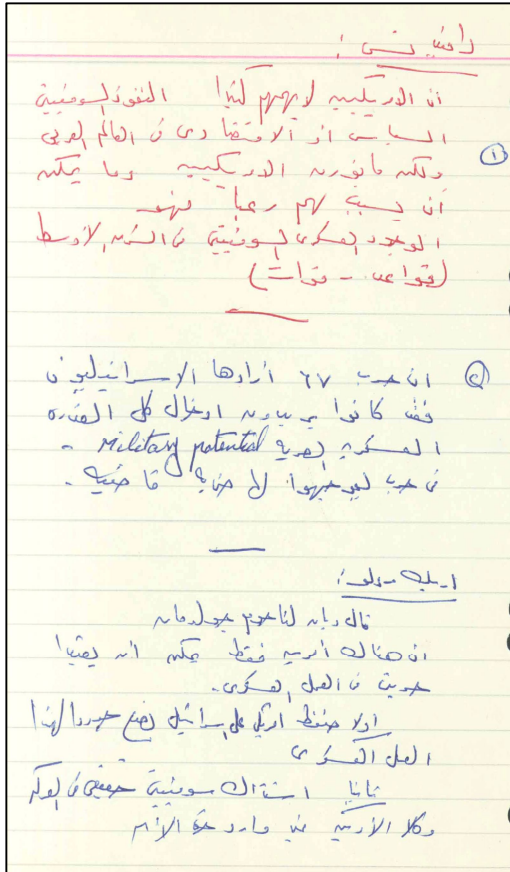 ان الامريكيين لا يهمهم كثيرا النفوذ السوفيتي
السياسي او الاقتصادى فى العالم العربى
①
ولكن الامريكيين وما يمكن
أن يسبب لهم رعبا فهو
الوجود العسكرى السوفيتى فى الشرق الاوسط
(قواعد - قوات)
② ان حرب ٦٧ أرادها الاسرائيليون
فقد كانوا يريدون ادخال كل القدره
العسكريه المصريه Military potential -
فى حرب ليوجهوا لها ضربة قاضيه -
اريك رولو:
قال ديان لناحوم جولدمان
ان هناك أمرين فقط يمكن ان يقيدا
حريتى فى العمل العسكرى.
اولا ضغط امريكى على اسرائيل يضع حدودا لهذا
العمل العسكرى
ثانيا اشتراك سوفيتى حقيقى فى المعركه
وكلا الأمرين غير وارد حتى الآن